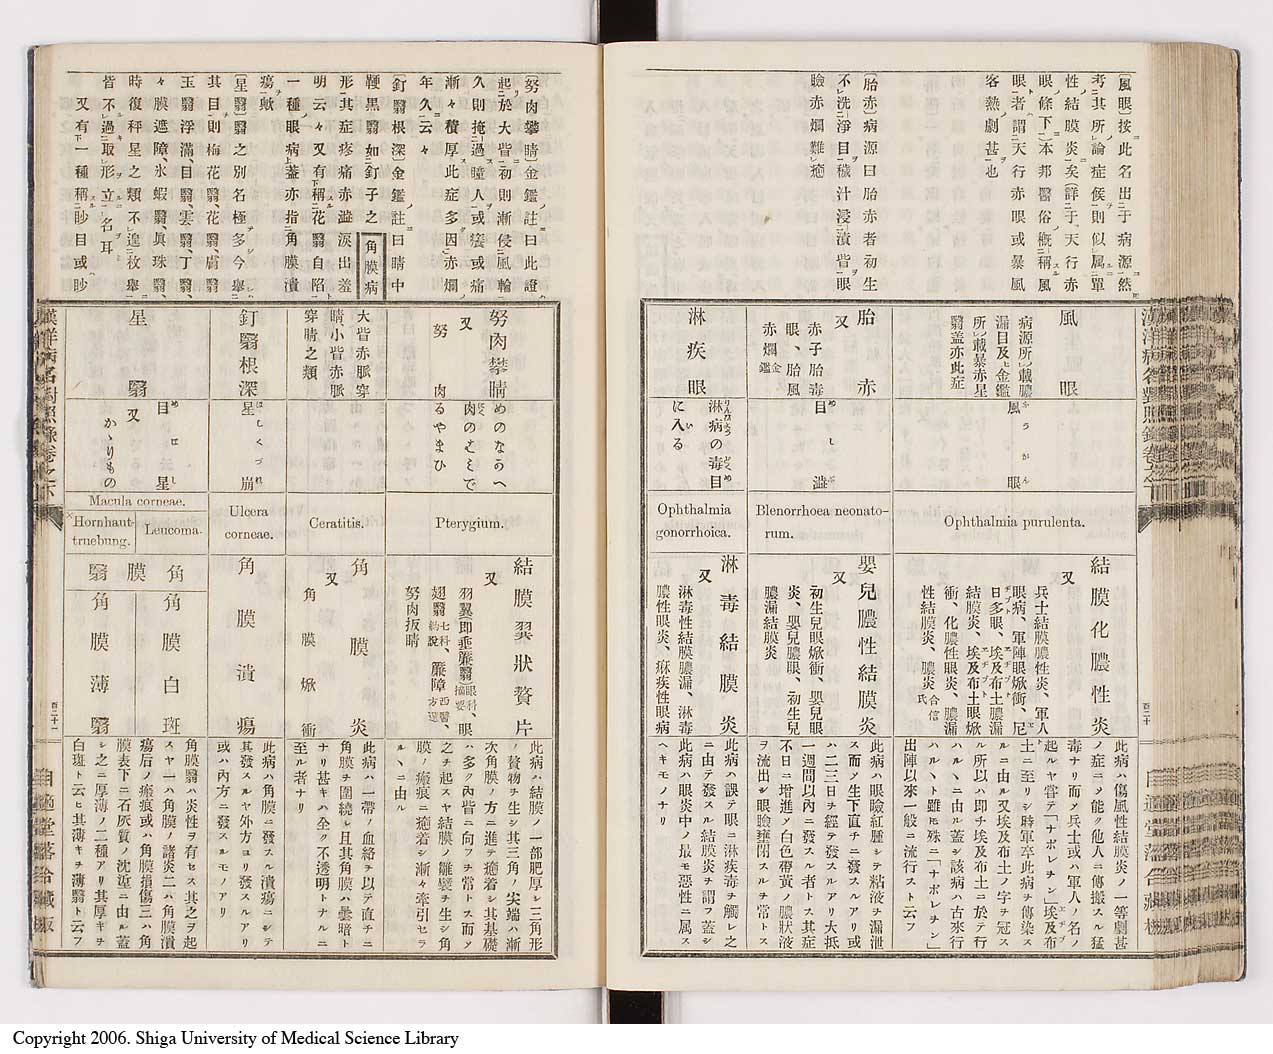 〔風眼〕按此名出于病源然
考其所論症候則似属單
性結膜炎矣(詳于天行赤
眼條下)本邦醫俗概稱風
眼者謂天行赤眼或暴風
客熱劇甚也
〔胎赤〕病源曰胎赤者初生
不洗淨目穢汁浸漬眥眼
瞼赤爛難癒
風眼
病源所載膿
漏目及金鑑
所載暴赤星
翳盖亦此症
風眼
ふうがん
Ophthalmia purulenta.
結膜化膿性炎
又
兵士結膜膿性炎、軍人
眼病、軍陣眼焮衝、尼
日多眼、埃及布土膿漏
結膜炎、埃及布土眼焮
衝、化膿性眼炎、膿漏
性結膜炎、膿炎合信氏
此病ハ傷風性結膜炎ノ一等劇甚
ノ症ニメ能ク他人ニ傳搬スル猛
毒ナリ而メ兵士或ハ軍人ノ名ノ
起ルヤ嘗テ「ナポレチン」埃及布
土ニ至リシ時軍卒此病ヲ傳染ス
ルニ由ル又埃及布土ノ字ヲ冠ス
ル所以ハ即チ埃及布土ニ於テ行
ハルヽニ由ル蓋シ該病ハ古來行
ハルヽト雖ㇺ殊ニ「ナポレチン」
出陣以來一般ニ流行スト云フ
胎赤
又
赤子胎毒
眼、胎風
赤爛金鑑
目澁
めしぶ
Blenorrhoea neonato-
rum.
嬰兒膿性結膜炎
又
初生兒眼焮衝、嬰兒眼
炎、嬰兒膿眼、初生兒
膿漏結膜炎
此病ハ眼瞼紅腫シテ粘液ヲ漏泄
ス而メ生下直チニ發スルアリ或
ハ二三日ヲ經テ發スルアリ大抵
一週間以內ニ發スル者トス其症
不日ニ增進メ白色帶黃ノ膿狀液
ヲ流出シ眼瞼壅閉スルヲ常トス
淋疾眼
淋病の毒目
に入る
Ophthalmia
gonorrhoica.
淋毒結膜炎
又
淋毒性結膜膿漏、淋毒
膿性眼炎、痳疾性眼病
此病ハ誤テ眼ニ淋疾毒ヲ觸レ之
ニ由テ發スル結膜炎ヲ謂フ蓋シ
此病ハ眼炎中ノ最モ惡性ニ属ス
ヘキモノナリ
〔努肉攀睛〕金鑑註曰此證
起於大眥初則漸侵風輪
久則掩過瞳人或癢或痛
漸々積厚此症多因赤爛
年久云々
釘翳根深〕金鑑註曰睛中
鞕黑翳如釘子之
形其症疼痛赤澁淚出羞
明云々又有稱花翳自陷
一種眼病蓋亦指角膜潰
瘍歟
〔星翳〕翳之別名極多今擧
其目則梅花翳、花翳、膚翳、
玉翳浮滿、目翳、雲翳、丁翳、
々膜遮障、氷蝦翳、眞珠翳、
時復秤星之類不遑枚擧
皆不過取形立名耳
又有一種稱眇目或眇
角膜病
努肉攀睛
又
努肉
めのなうへ
肉のこみで
るやまひ
Pterygium.
結膜翼狀贅片
又
羽翼(即垂簾翳)眼科摘要、眼
翅翳七科約說、簾障西醫方選、
努肉扳睛
此病ハ結膜ノ一部肥厚シ三角形
ノ贅物ヲ生シ其三角ノ尖端ハ漸
次角膜ノ方ニ進テ癒着シ其基礎
ハ多ク內眥ニ向フヲ常トス而メ
之ヲ起スヤ結膜ノ皺襞ヲ生シ角
膜ノ瘢痕ニ癒着シ漸々牽引セラ
ルヽニ由ル
大眥赤脈穿
睛、小眥赤脈
穿睛之類
Ceratitis.
角膜炎
又
角膜焮衝
此病ハ一帶ノ血絡ヲ以テ直チニ
角膜ヲ圍繞レ且其角膜ハ曇暗ト
ナリ甚キハ全ク不透明トナルニ
至ル者ナリ
釘翳根深
星崩
ほしくづれ
Ulcera
corneae.
角膜潰瘍
此病ハ角膜ニ發スル潰瘍ニシテ
其發スルヤ外方ヨリ發スルアリ
或ハ內方ニ發スルモノアリ
星翳
目星
めぼし
又
かゝりもの
Macula corneae.
Leucoma.
Hornhaut-
truebung.
角膜翳
角膜白斑
角膜薄翳
角膜翳ハ炎性ヲ有セス其之ヲ起
スヤ一ハ角膜ノ諸炎二ハ角膜潰
瘍后ノ瘢痕或ハ角膜損傷三ハ角
膜表下ニ石灰質ノ沈澱ニ由ル蓋
シ之ニ厚薄ノ二種アリ其厚キヲ
白斑ト云ヒ其薄キヲ薄翳ト云フ
Copyright 2006. Shiga University of Medical Science Library